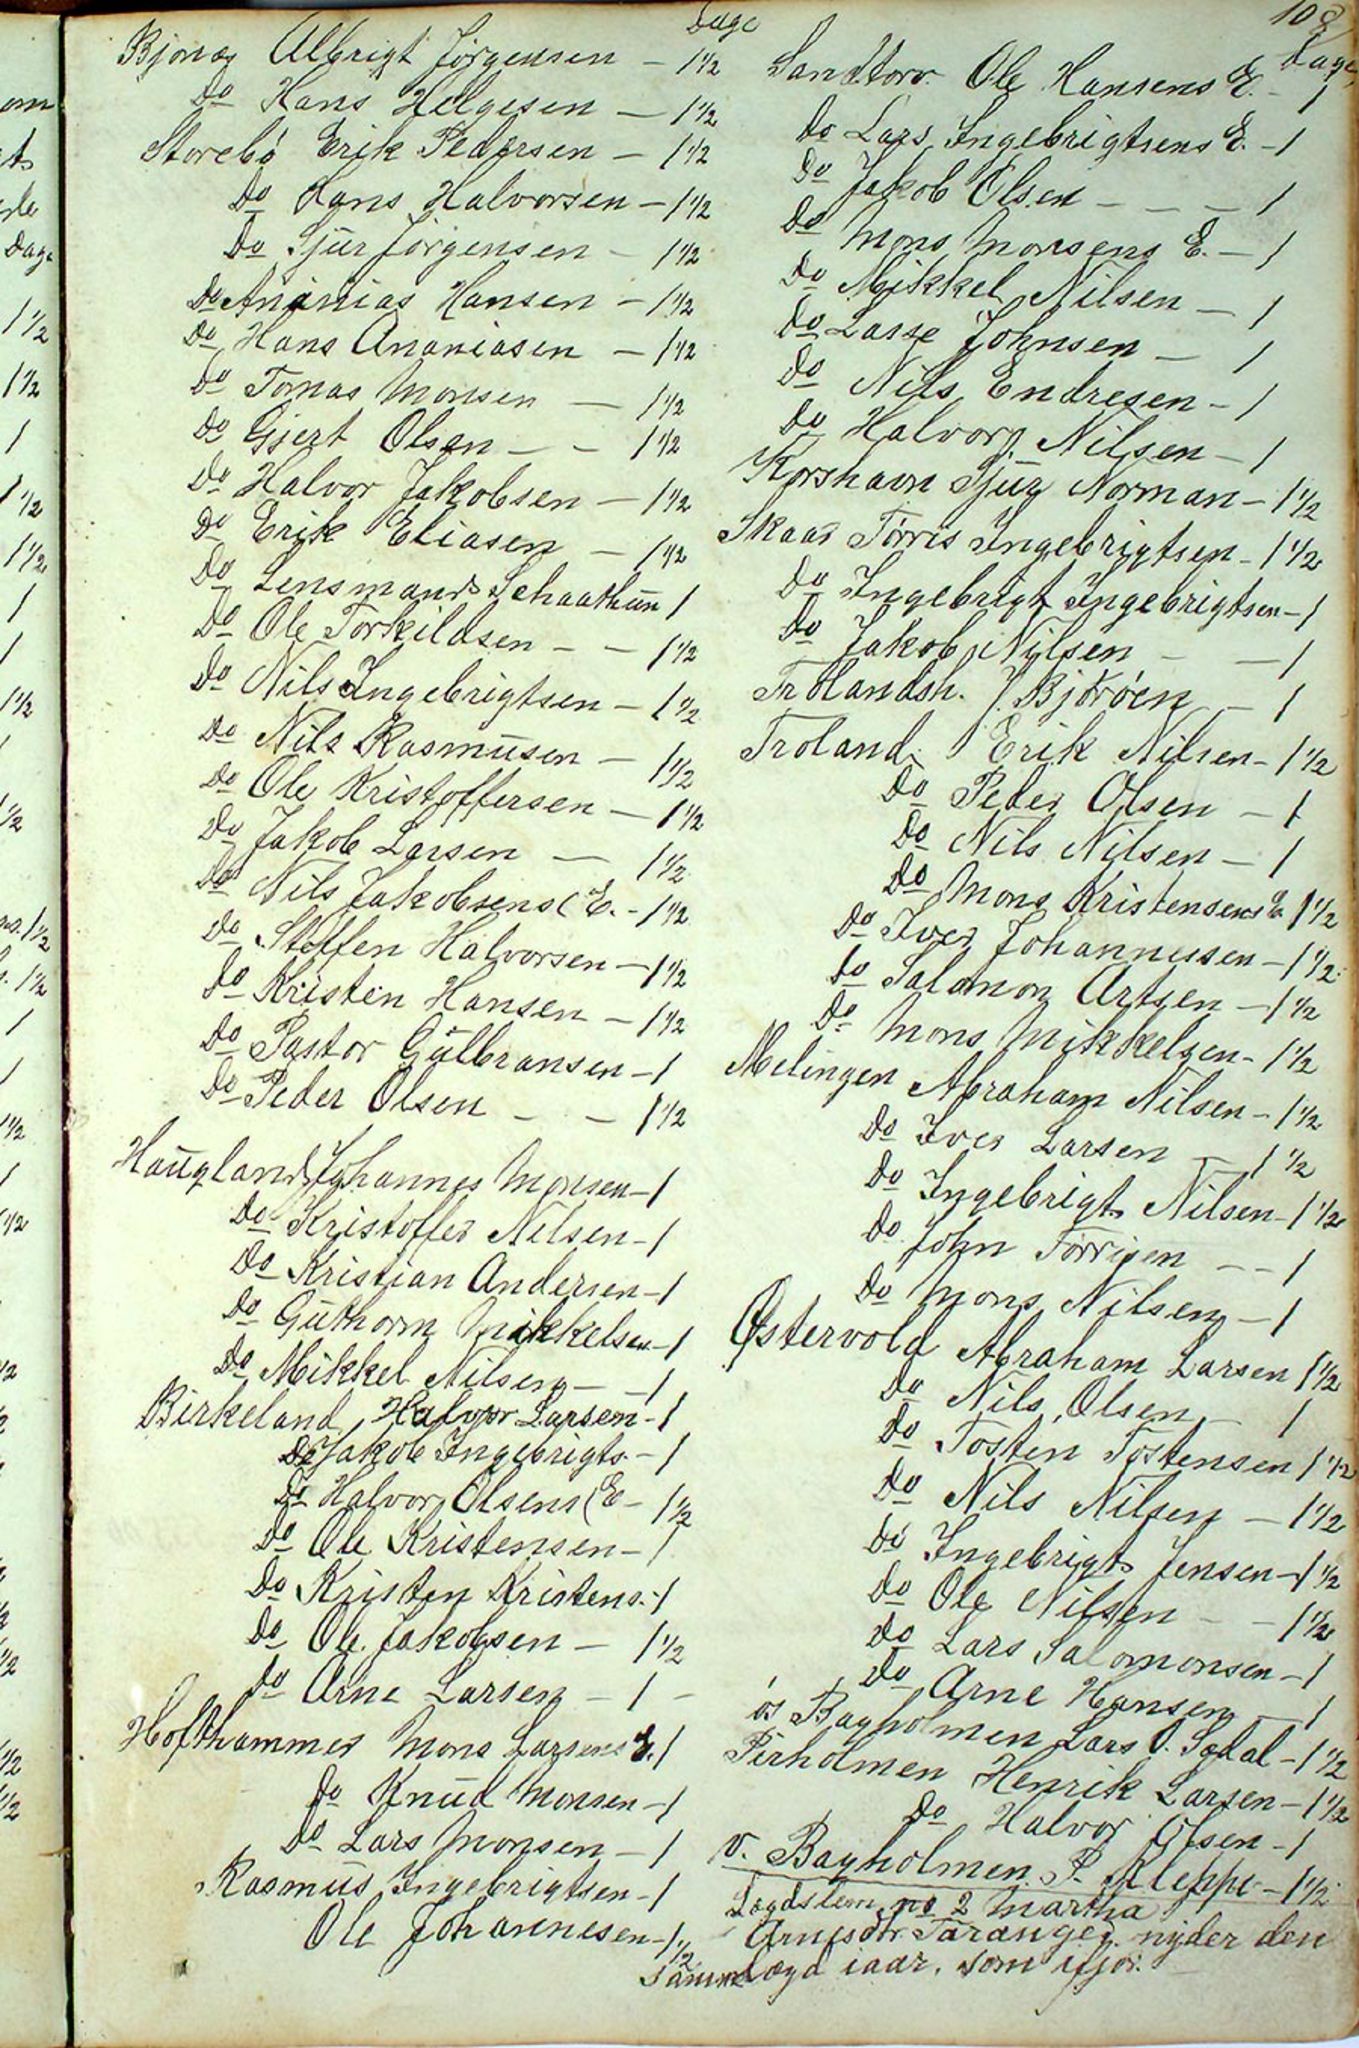 108
Dage
Bjonæs Albrigt Jørgensen - 1 1/2
Do Hans Helgesen - 1 1/2
Storebø Erik Pedersen - 1 1/2
Do Hans Halvorsen - 1 1/2
Do Sjur Jørgensen - 1 1/2
Do Ananias Hansen - 1 1/2
Do Hans Ananiasen - 1 1/2
Do Tomas Monsen - 1 1/2
Do Gjert Olsen - - 1 1/2
Do Halvor Jakobsen - 1 1/2
Do Erik Eliasen - 1 1/2
Do Lensmand Schaathun 1
Do Ole Torkildsen - - 1 1/2
Do Nils Ingebrigtsen - 1 1/2
Do Nils Rasmusen - 1 1/2
Do Ole Kristoffersen - 1 1/2
Do Jakob Larsen - 1 1/2
Do Nils Jakobsens (E. - 1 1/2
Do Steffen Halvorsen - 1 1/2
Do Kristen Hansen - 1 1/2
Do Pastor Gulbransen - 1
Do Peder Olsen - - 1 1/2
Haugland Johannes Monsen - 1
Do Kristoffer Nilsen - 1
Do Kristian Andersen - 1
Do Guthorm Mikkelsen - 1
Do Mikkel Nilsen - - 1
Birkeland Halvor Larsen - 1
Do Jakob Ingebrigts. - 1
Do Halvor Olsens (E - 1 1/2
Do Ole Kristensen - 1
Do Kristen Kristens. - 1
Do Ole Jakobsen - 1 1/2
Do Arne Larsen - 1 -
Hofthammer Mons Larsens E. 1
Do Knud Monsen - 1
Do Lars Monsen - 1
Rasmus Ingebrigtsen - 1
Ole Johannesen - 1 1/2
Dage
Sandtorv Ole Hansens E. - 1
Do Lars Ingebrigtsens E. - 1
Do Jakob Olsen - - - 1
Do Mons Monsens E. - 1
Do Mikkel Nilsen - 1
Do Lasse Johnsen - 1
Do Nils Endresen - 1
Do Halvor Nilsen - 1
Korshavn Sjur Norman - 1 1/2
Skaar Tørris Ingebrigtsen - 1 1/2
Do Ingebrigt Ingebrigtsen - 1
Do Jakob Nilsen - - 1
Trolandsh. J. Bjørøen - 1
Troland Erik Nilsen - 1 1/2
Do Peder Olsen - 1
Do Nils Nilsen - 1
Do Mons Kristensens E. 1 1/2
Do Iver Johannessen - 1 1/2
Do Salomon Artsen - 1 1/2
Do Mons Mikkelsen - 1 1/2
Melingen Abraham Nilsen - 1 1/2
Do Iver Larsen - 1 1/2
Do Ingebrigt Nilsen - 1 1/2
Do John Tørrisen - - 1
Do Mons Nilsen - 1
Østervold Abraham Larsen 1 1/2
Do Nils Olsen - 1
Do Tosten Tostensen 1 1/2
Do Nils Nilsen - 1 1/2
Do Ingebrigt Jensen - 1 1/2
Do Ole Nilsen - - 1 1/2
Do Lars Salomonsen - 1
Do Arne Hansen - 1
øs Bagholmen Lars O. Sædal - 1 1/2
Pirholmen Henrik Larsen - 1 1/2
Do Halvor Olsen - 1
v. Bagholmen P. Kleppe - 1 1/2
Lægdslem no 2 Martha
Arnesdtr Taranger nyder den
samme Lægd iaar, som ifjor.